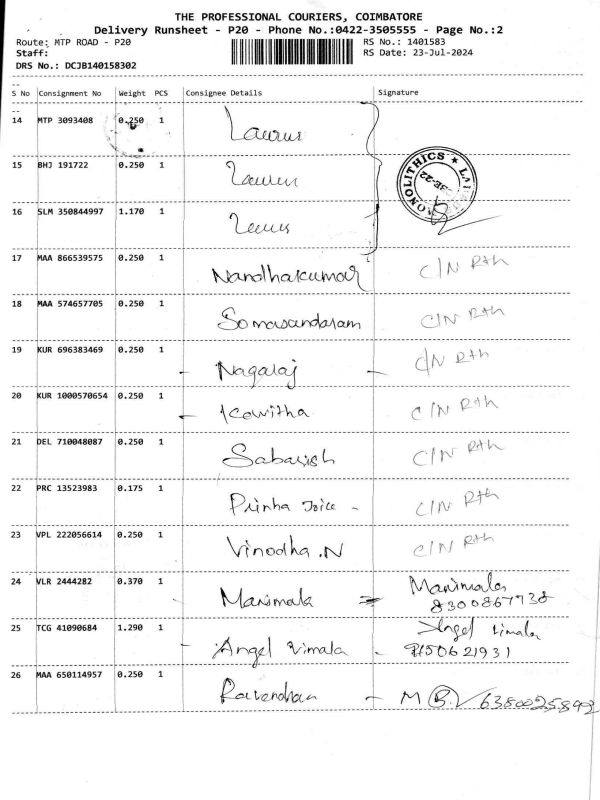 THE PROFESSIONAL COURIERS, COIMBATORE
Delivery Runsheet - P20 - Phone No.:0422-3505555 - Page No.:2
Route: MTP ROAD - P20 RS No.: 1401583
Staff: RS Date: 23-Jul-2024
DRS No.: DCJB140158302
S No Consignment No Weight PCS Consignee Details Signature
14 MTP 3093408 0.250 1
15 BHJ 191722 0.250 1
MONOLITHICS ★
16 SLM 350844997 1.170 1
17 MAA 866539575 0.250 1 Nandhakumar C/N Rth
18 MAA 574657705 0.250 1 Somasandaram C/N Rth
19 KUR 696383469 0.250 1 - Nagaraj - C/N Rth
20 KUR 1000570654 0.250 1 - Kawitha C/N Rth
21 DEL 710048087 0.250 1 Sabarish C/N Rth
22 PRC 13523983 0.175 1 C/N Rth
23 VPL 222056614 0.250 1 Vinodha.N C/N Rth
24 VLR 2444282 0.370 1 Manimala = Manimala
8300867738
25 TCG 41090684 1.290 1 - Angel Vimala - Angel Vimala
26 MAA 650114957 0.250 1 - M